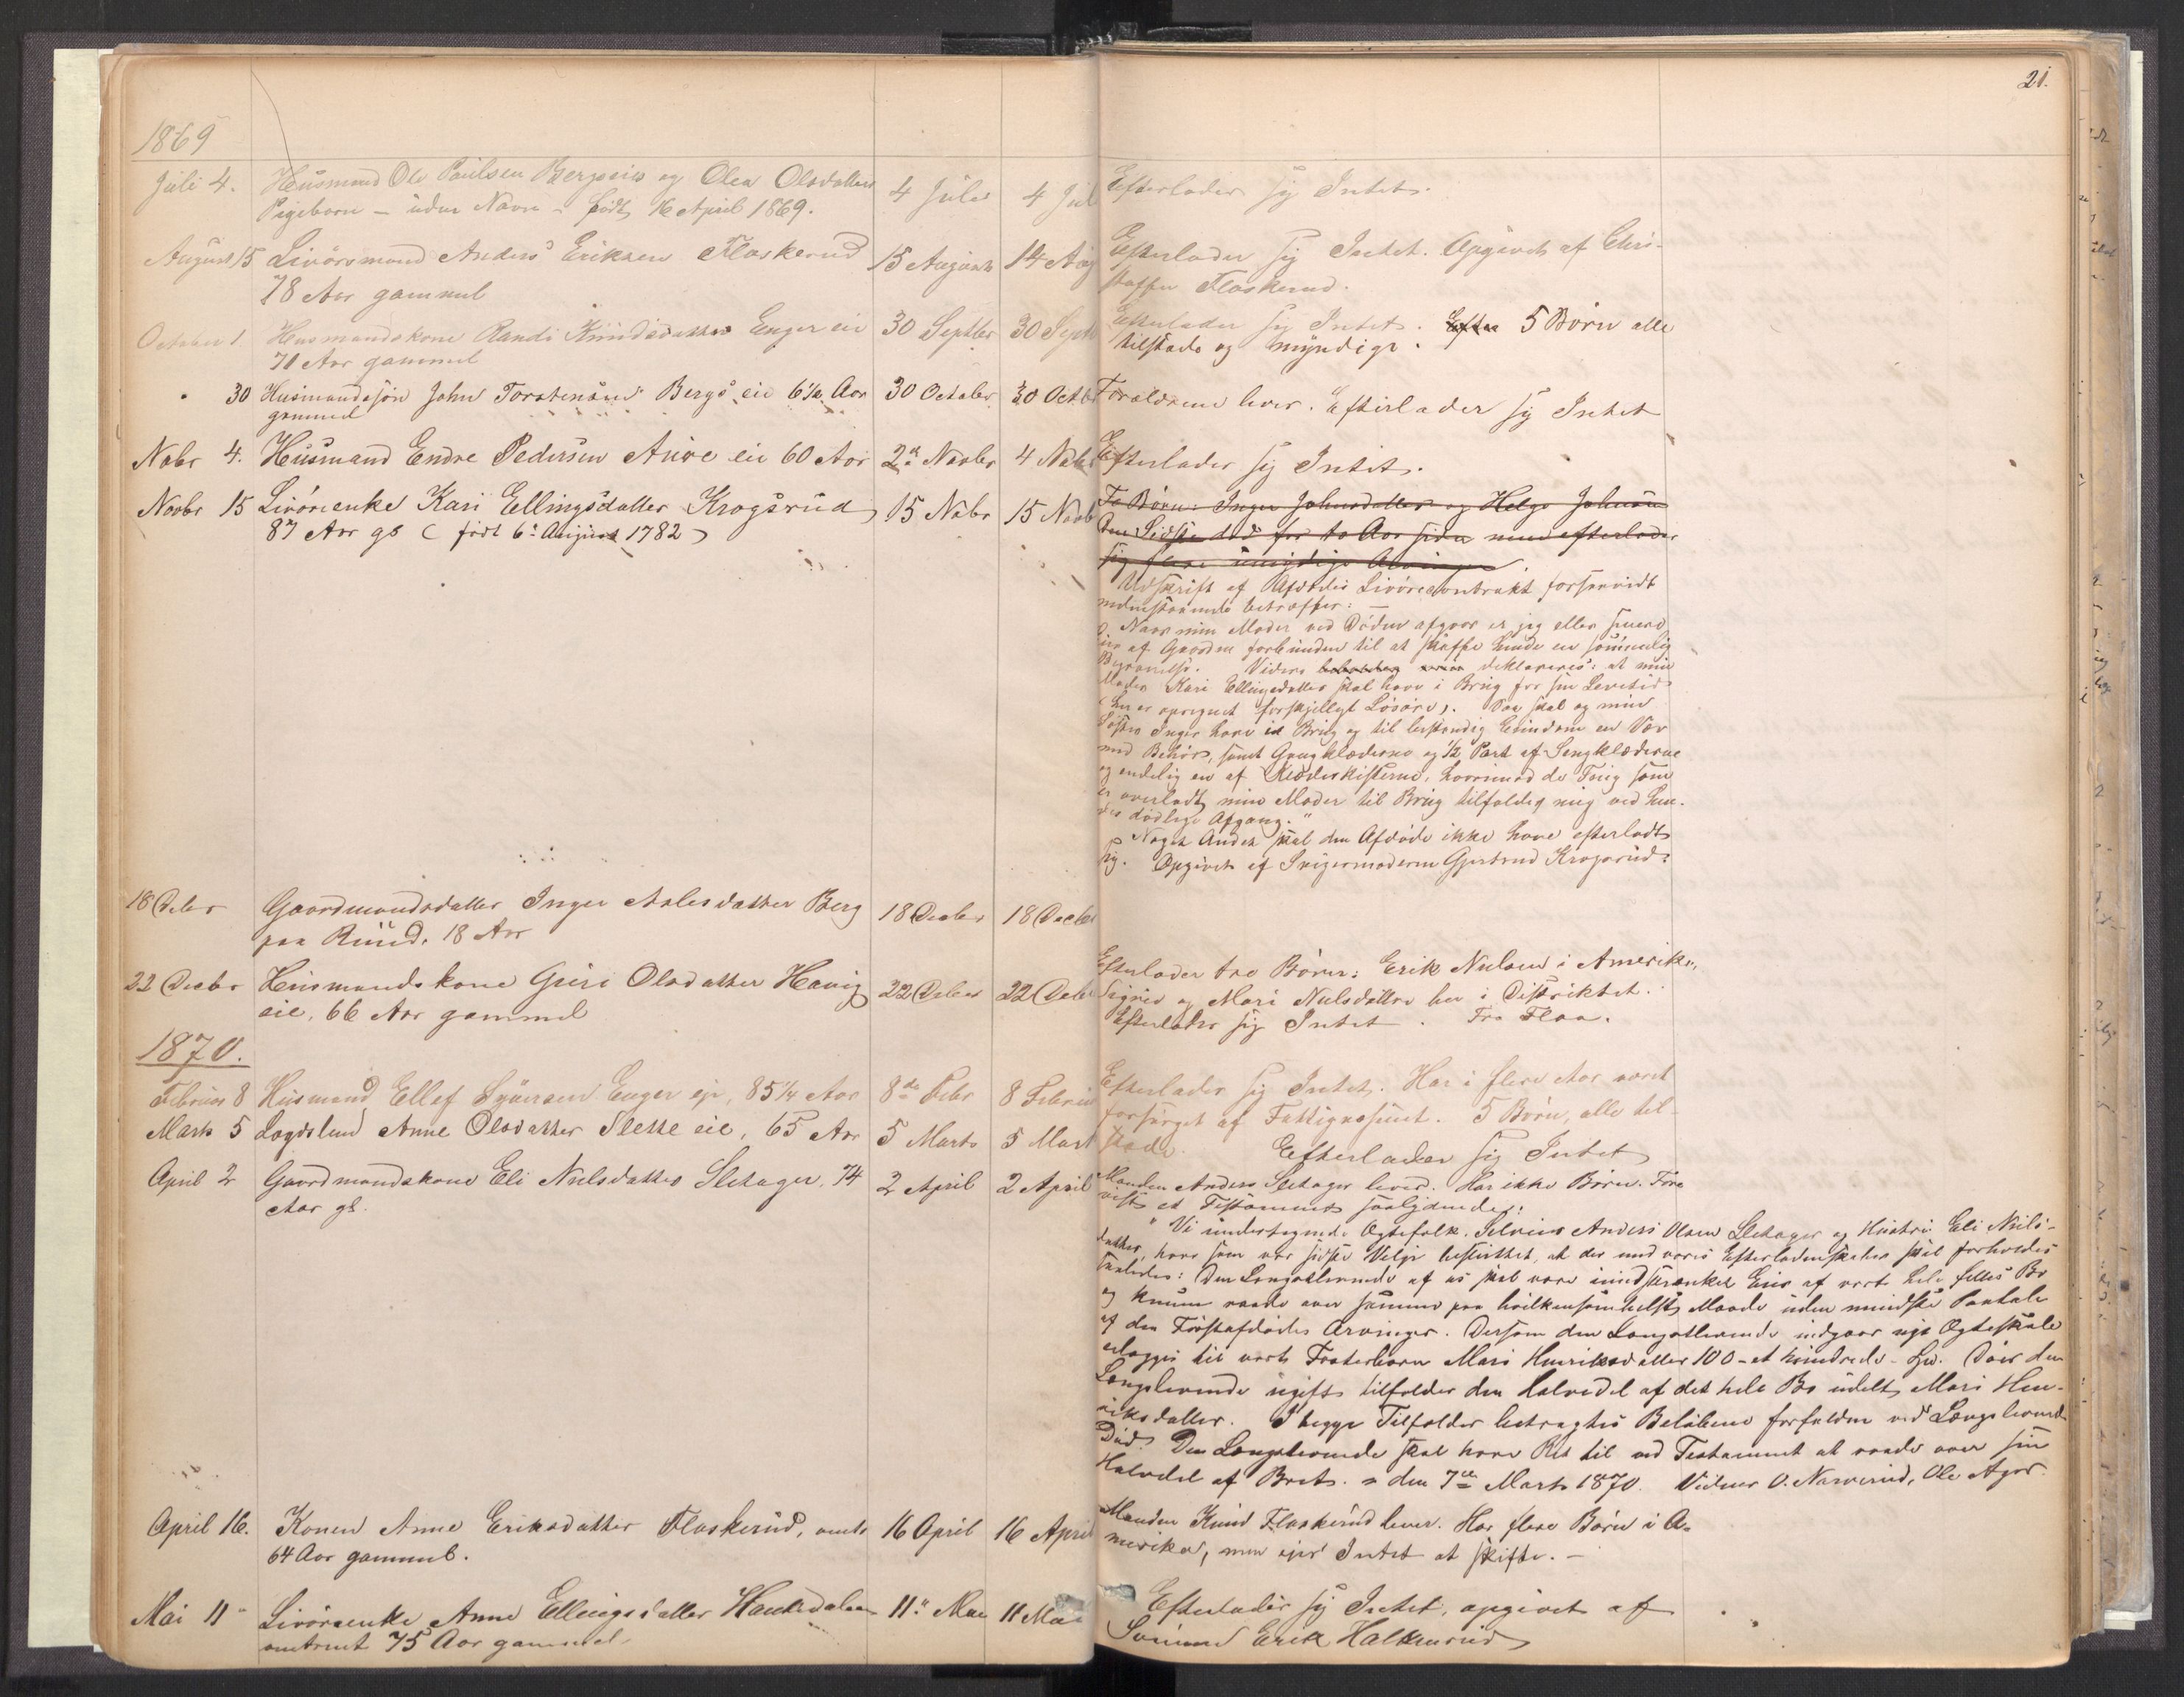 21.
1869
Juli 4. Husmand Ole Paulsen Bergseie og Olea Olsdatters 4 Juli 4 Jul Efterlader sig Intet.
Pigebarn – uden Navn – født 16 April 1869.
August 15 Livörsmand Anders Eriksen Flaskerud 15 August 14 Aug Efterlader sig Intet. Opgivet af Chri-
78 Aar gammel stoffer Flaskerud.
October 1. Husmandskone Randi Knudsdatter Enger eie 30 Septbr 30 Sept Efterlader sig Intet. Efter 5 Börn alle
71 Aar gammel tilstede og myndige.
" 30 Husmandssön John Torstensen Bergs eie 6½ Aar 30 October 30 Octb Forældrene lever. Efterlader sig Intet
gammel
Nobr 4. Husmand Endre Pedersen Aure eie 60 Aar 2de Novbr 4 Nobr Efterlader sig Intet.
Novbr 15 Livörenke Kari Ellingsdatter Krogsrud 15 Nobr 15 Novb To Börn: Inger Johnsdatter og Helge Johnsen
87 Aar gl (født 6te August 1782) Den Sidste död for to Aar siden men efterlader
sig flere umyndige Arvinger
Udskrift af Afdödes Livörecontrakt forsaavidt
nedenstaaende betræffer: –
Naar min Moder ved Döden afgaar er jeg eller senere
eier af Gaarden forbunden til at skaffe hende en sömmelig
Begravelse. Videre deklareres: at min
Moder Kari Ellingsdatter skal have i Brug for sin Levetid
(her er opregnet forskjelligt Lösöre). Saa skal og min
Söster Inger have i Brug og til bestandig Eiendom en Væv
med Behör, samt Gangklæderne og ½ Part af Sengklæderne
og endelig en af Klædeskisterne, hvorimod de Ting som
er overladt min Moder til Brug tilfalder mig ved hen-
des dödlige Afgang."
Noget Andet skal den Afdöde ikke have efterladt
sig. Opgivet af Svigermoderen Gjertrud Krogsrud.
18 Decbr Gaardmandsdatter Inger Aslesdatter Berg 18 Decbr 18 Decbr
paa Ruud. 18 Aar
22 Decbr Husmandskone Guri Olsdatter Havig 22 Decbr 22 Decb Efterlader tre Börn: Erik Nielsen i Amerika,
eie, 66 Aar gammel Sigrid og Mari Nielsdöttre her i Distriktet.
Efterlader sig Intet. Fra Flaa.
1870.
Februar 8 Husmand Ellef Syversen Enger eje, 85¼ Aar 8de Febr 8 Februa Efterlader sig Intet. Har i flere Aar været
forsörget af Fattigvæsenet. 5 Börn, alle til-
Marts 5 Lægdslem Anne Olsdatter Slette eie, 65 Aar 5 Marts 5 Mart stede. Efterlader sig Intet
April 2 Gaardmandskone Eli Nielsdatter Sletager, 74 2 April 2 April Manden Anders Sletager lever. Har ikke Börn. Fore
Aar gl. vist et Testament saalydende:
"Vi undertegnede Ægtefolk, Selveier Anders Olsen Sletager og Hustru Eli Niels-
datter, have som vor sidste Vilje besluttet, at der med vores Efterladenskaber skal forholdes
saaledes: Den Længstlevende af os skal være uindskrænket Eier af vort hele fælles Bo
og kunne raade over samme paa hvilkensomhelst Maade uden mindste Paatale
af den Förstafdödes Arvinger. Dersom den Længstlevende indgaar nyt Ægteskab
erlægges til vort Fosterbarn Mari Henriksdatter 100 – et hundrede – Spd. Döer den
Længstlevende ugift tilfalder den Halvedel af det hele Bo udelt Mari Hen-
riksdatter. I begge Tilfælder betragtes Belöbene forfalden ved Længstlevendes
Död. Den Længstlevende skal have Ret til ved Testament at raade over sin
Halvdel af Boet. " den 7de Marts 1870. Vidner O. Narverud, Ole Ager.
April 16. Konen Anne Eriksdatter Flaskerud, omtr 16 April 16 April Manden Knud Flaskerud lever. Har flere Börn i A-
64 Aar gammel. merika, men ejer Intet at skifte. –
Mai 11 Livörenke Anne Ellingsdatter 11te Mai 11 Mai Efterlader sig Intet, opgivet af
omtrent 75 Aar gammel Erik